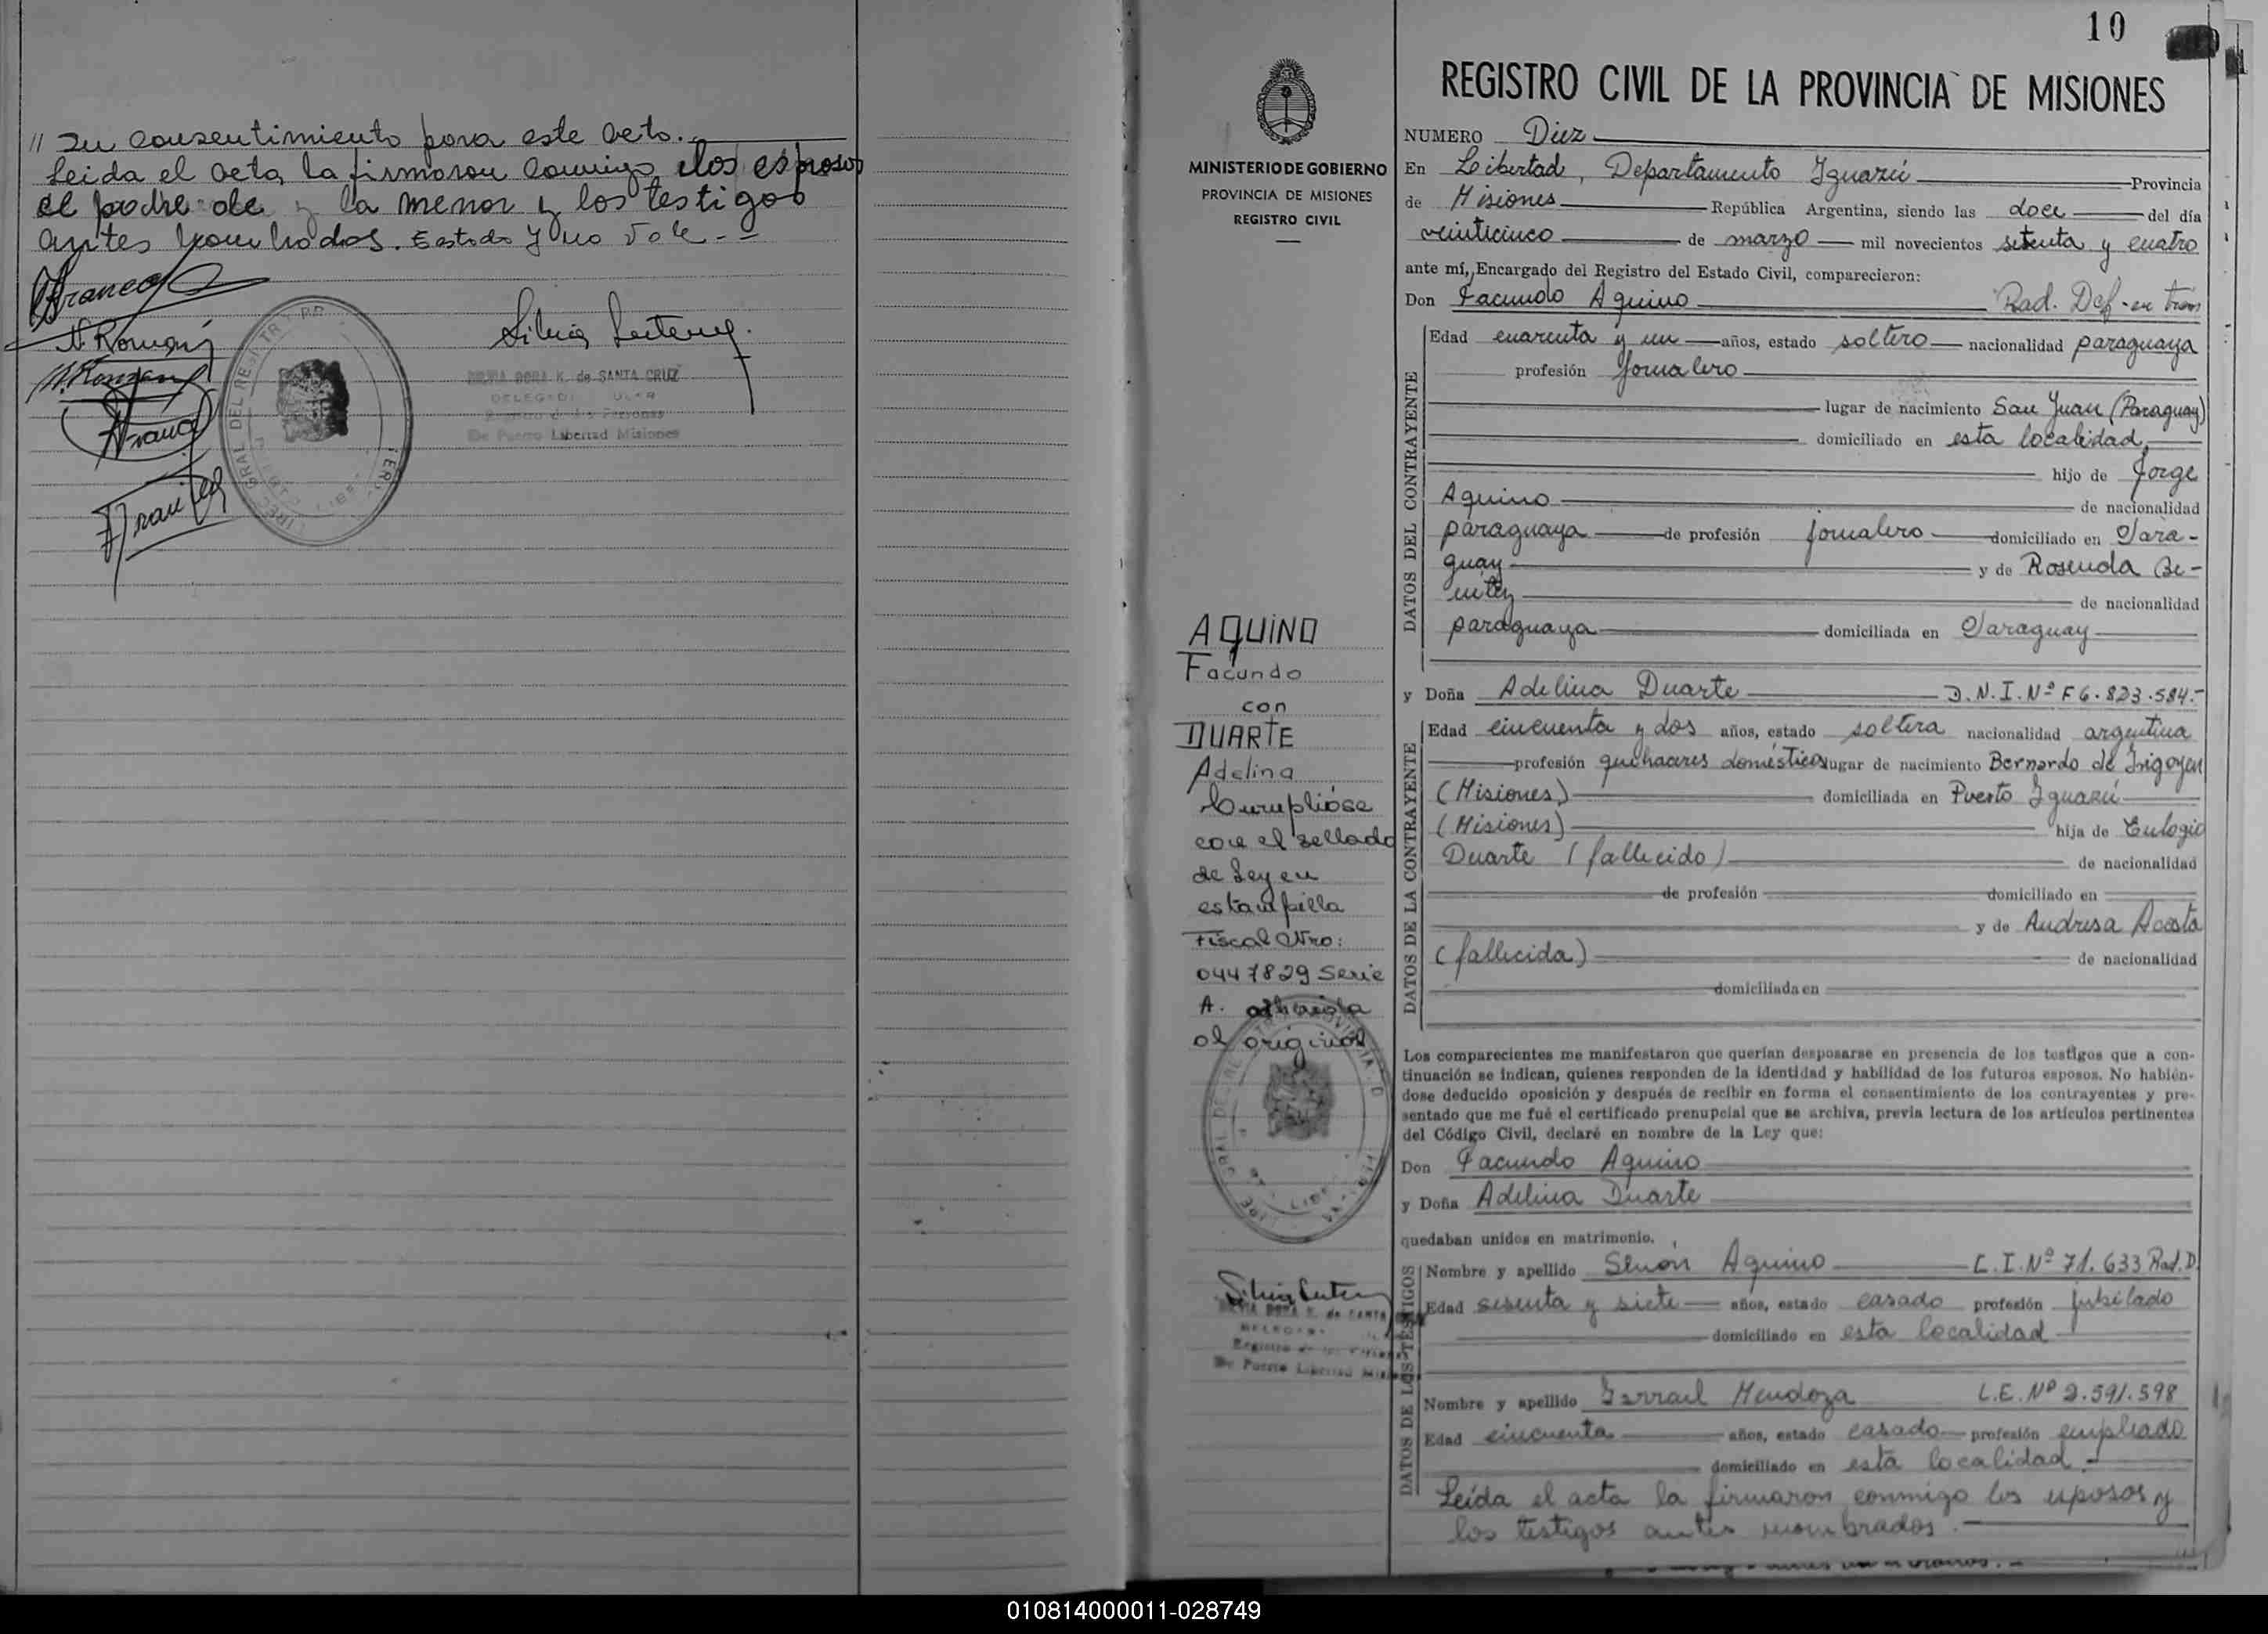 // su consentimiento para este acto.
Leida el acta la firmaron conmigo los esposos
el padre de y la menor y los testigos
antes nombrados. Testado y no vale - -
N. Román
Silvia
SILVIA DORA K. de SANTA CRUZ
De Puerto Libertad Misiones
10
MINISTERIO DE GOBIERNO
PROVINCIA DE MISIONES
REGISTRO CIVIL
AQUINO
Facundo
con
DUARTE
Adelina
Cumplióse
con el sellado
de Ley en
estampilla
Fiscal Nro:
0447829 Serie
A. adherida
al original
Silvia
De Puerto Libertad
REGISTRO CIVIL DE LA PROVINCIA DE MISIONES
NUMERO Diez
En Libertad, Departamento Iguazú Provincia
de Misiones República Argentina, siendo las doce del día
veinticinco de marzo mil novecientos setenta y cuatro
ante mí, Encargado del Registro del Estado Civil, comparecieron:
Don Facundo Aquino Rad. Def - en trám
DATOS DEL CONTRAYENTE
Edad cuarenta y un años, estado soltero nacionalidad paraguaya
profesión jornalero
lugar de nacimiento San Juan (Paraguay)
domiciliado en esta localidad
hijo de Jorge
Aquino de nacionalidad
paraguaya de profesión jornalero domiciliado en Para-
guay y de Rosenda Be-
nitez de nacionalidad
paraguaya domiciliada en Paraguay
y Doña Adelina Duarte D.N.I. Nº F 6.823.584.-
DATOS DE LA CONTRAYENTE
Edad cincuenta y dos años, estado soltera nacionalidad argentina
profesión quehaceres domésticos lugar de nacimiento Bernardo de Irigoyen
(Misiones) domiciliada en Puerto Iguazú
(Misiones) hija de Eulogio
Duarte (fallecido) de nacionalidad
de profesión domiciliado en
y de Andresa Acosta
(fallecida) de nacionalidad
domiciliada en
Los comparecientes me manifestaron que querían desposarse en presencia de los testigos que a con-
tinuación se indican, quienes responden de la identidad y habilidad de los futuros esposos. No habién-
dose deducido oposición y después de recibir en forma el consentimiento de los contrayentes y pre-
sentado que me fué el certificado prenupcial que se archiva, previa lectura de los artículos pertinentes
del Código Civil, declaré en nombre de la Ley que:
Don Facundo Aquino
y Doña Adelina Duarte
quedaban unidos en matrimonio.
DATOS DE LOS TESTIGOS
Nombre y apellido Simón Aquino C.I. Nº 71.633 Rad. D.
Edad sesenta y siete años, estado casado profesión jubilado
domiciliado en esta localidad
Nombre y apellido Isrrael Mendoza L.E. Nº 2.591.598
Edad cincuenta años, estado casado profesión empleado
domiciliado en esta localidad.
Leída el acta la firmaron conmigo los esposos y
los testigos antes nombrados.
010814000011-028749